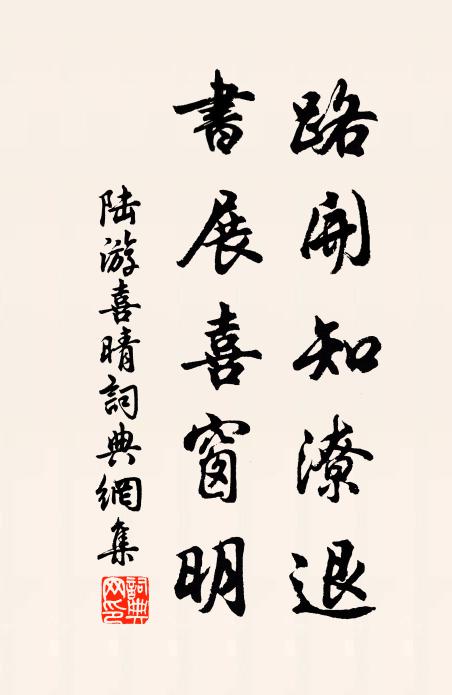 路開知潦退
書展喜窗明
陸游喜晴詞典網集
詞典网印